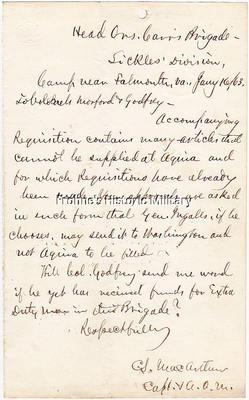 Head Qrs. Carr's Brigade -
Sickles' Division,
Camp near Falmouth, Va., Jany 16/63.
To Cols Morford & Godfrey -
Accompanying
Requisition contains many articles that
cannot be supplied at Aquia and
for which Requisitions have already
been made.
asked
Frohne's Historic Military
in such form that Gen Ingalls, if he
chooses, may send it to Washington and
not Aquia to be filled.
Will Col Godfrey send me word
if he yet has received funds for Extra
Duty men in this Brigade?
Respectfully
C.S. MacArthur
Capt. & A.Q.M.